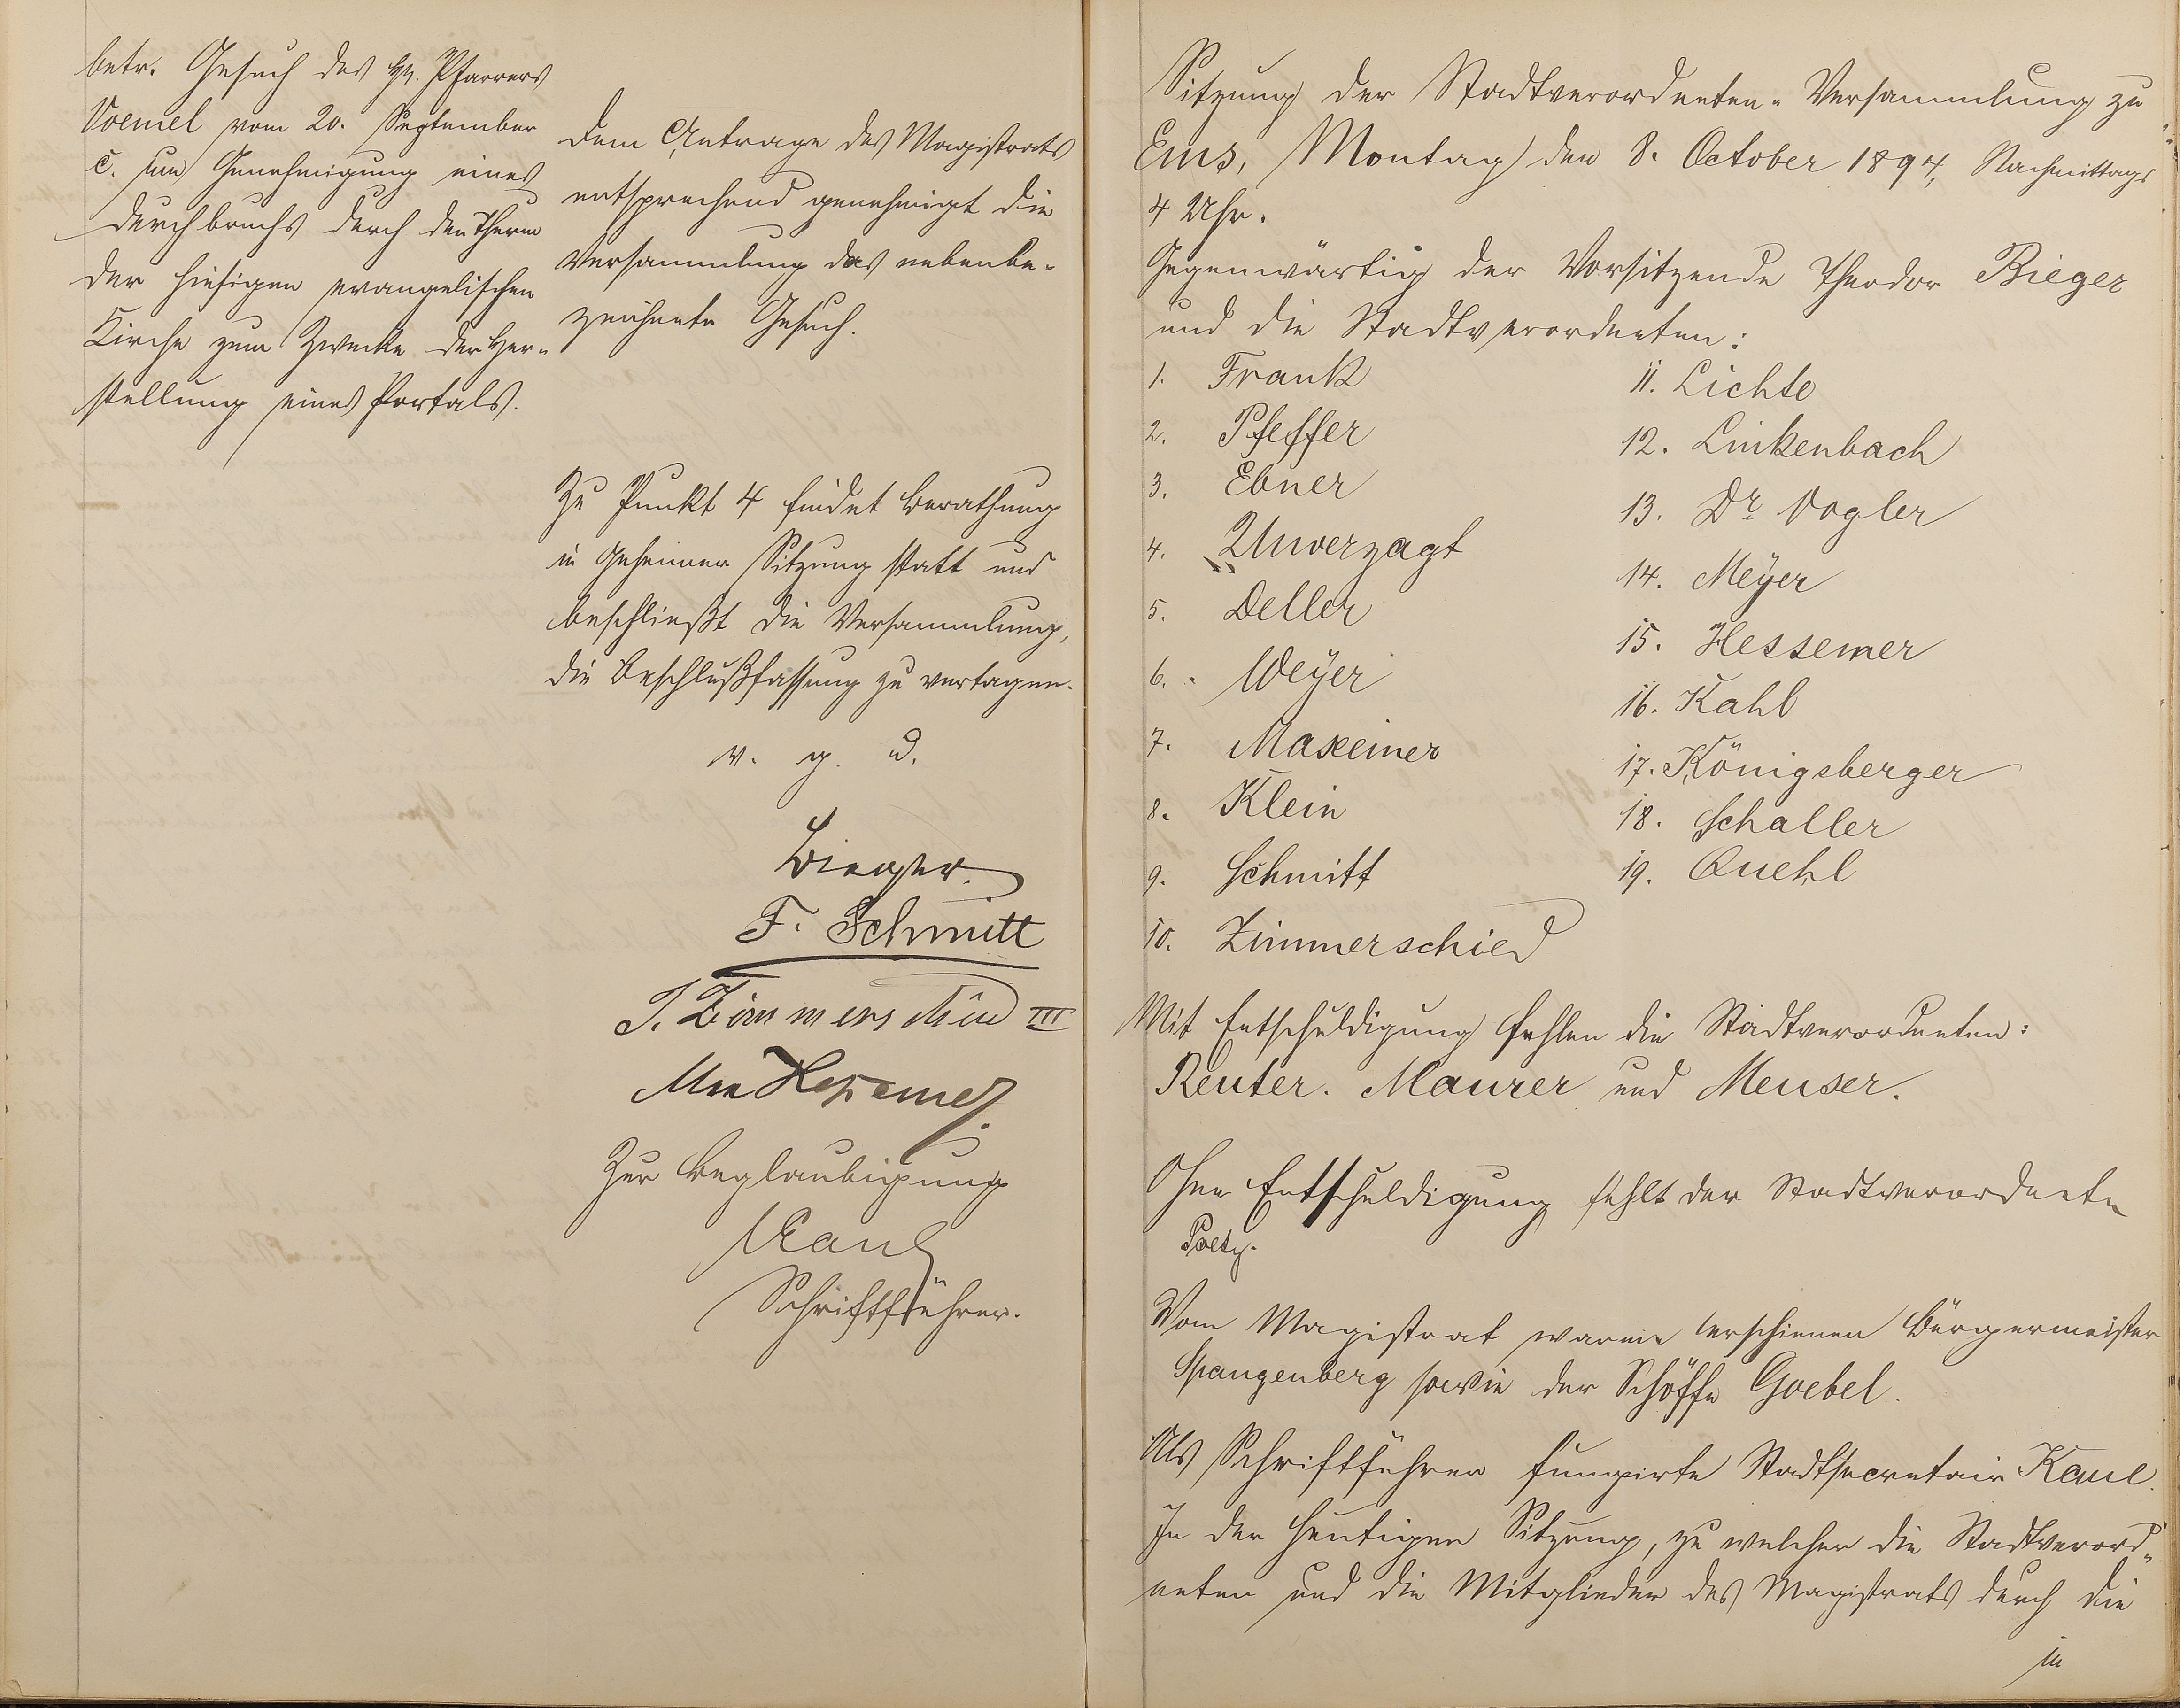 betr. Gesuch des Hr. Pfarrers
Voemel vom 20. September
c. um Genehmigung eines
Durchbruchs durch den Thurm
der hiesigen evangelischen
Kirche zum Zwecke der Her-
stellung eines Portals.
Dem Antrage des Magistrats
entsprechend genehmigt die
Versammlung das nebenbe-
zeichnete Gesuch.
Zu Punkt 4 findet Berathung
in geheimer Sitzung statt und
beschließt die Versammlung,
die Beschlußfassung zu vertagen.
v. g. u.
Bieger.
F. Schmitt
J. Zimmerschied III
Hessemer.
Zur Beglaubigung
Kaul
Schriftführer.
Sitzung der Stadtverordneten-Versammlung zu
Ems, Montag den 8. October 1894, Nachmittags
4 Uhr.
Gegenwärtig der Vorsitzende Theodor Bieger
und die Stadtverordneten:
1. Frank
2. Pfeffer
3. Ebner
4. Unverzagt
5. Deller
6. Weyer
7. Maxeiner
8. Klein
9. Schmitt
10. Zimmerschied
11. Lichte
12. Linkenbach
13. Dr. Vogler
14. Meyer
15. Hessemer
16. Kahl
17. Königsberger
18. Schaller
19. Quehl
Mit Entschuldigung fehlen die Stadtverordneten:
Reuter. Maurer und Meuser.
Ohne Entschuldigung fehlt der Stadtverordnete
Vom Magistrat waren erschienen Bürgermeister
Spangenberg sowie der Schöffe Goebel.
Als Schriftführer fungirte Stadtsecretair Kaul.
In der heutigen Sitzung, zu welcher die Stadtverord-
neten und die Mitglieder des Magistrats durch die
in